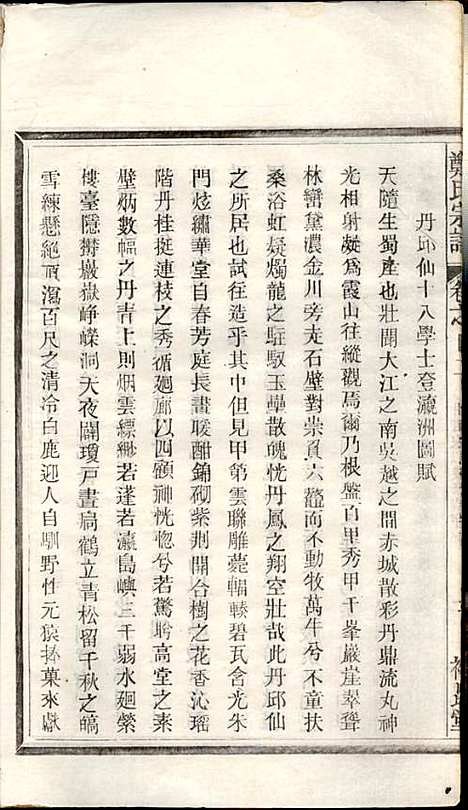 鄭氏宗譜
卷之
丹邱仙十八學士登瀛洲圖賦
天隨生蜀產也壯鬪大江之南吳越之間赤城散彩丹鼎流丸神
光相射凝為霞山往縱觀焉爾乃根盤百里秀甲千峯巖崖翠聳
林巒黛濃金川旁走石壁對崇負六鼇而不動牧萬牛兮不童扶
桑浴虹凝燭龍之駐馭玉𪩘散魄恍丹鳳之翔空壯哉此丹邱仙
之所居也試往造乎其中但見甲第雲聯雕薨輻輳碧瓦含光朱
門炫繡華堂自春芳庭長晝暖酣錦砌紫荆開合樹之花香沁瑶
階丹桂挺連枝之秀循廻廊以四顧神恍惚兮若驚聆高堂之素
壁炳數幅之丹青上則烟雲縹緲若蓬若瀛島嶼三千弱水廻縈
樓臺隱欝巖嶽崢嶸洞天夜闢瓊戶晝扃鶴立青松留千秋之皜
雪練懸絕頂瀉百尺之清冷白鹿迎人自馴野性元猿捧菓來獻